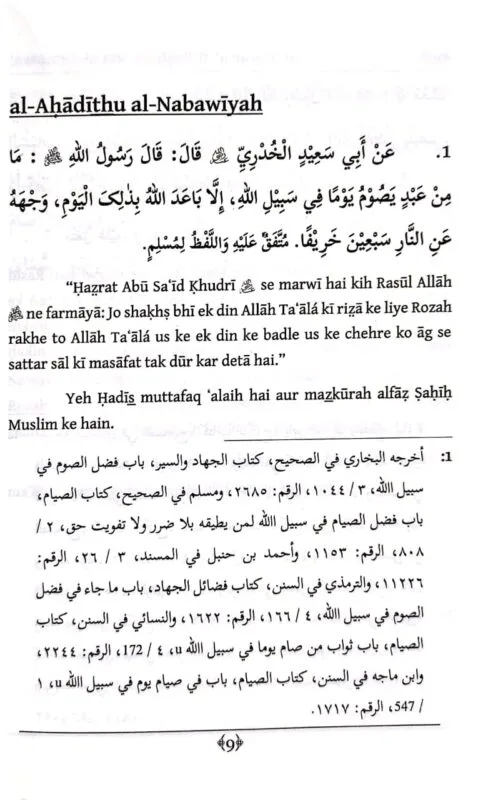 al-Aḥādīthu al-Nabawīyah
1. عَنْ أَبِي سَعِيْدٍ الْخُدْرِيِّ ﷺ قَالَ: قَالَ رَسُولُ اللهِ ﷺ : مَا
مِنْ عَبْدٍ يَصُوْمُ يَوْمًا فِي سَبِيْلِ اللهِ، إِلَّا بَاعَدَ اللهُ بِذٰلِكَ الْيَوْمِ، وَجْهَهُ
عَنِ النَّارِ سَبْعِيْنَ خَرِيْفًا. مُتَّفَقٌ عَلَيْهِ وَاللَّفْظُ لِمُسْلِمٍ.
“Ḥaẓrat Abū Sa‘īd Khudrī se marwī hai kih Rasūl Allāh
ﷺ ne farmāyā: Jo shakhṣ bhī ek din Allāh Ta‘ālá kī riẓā ke liye Rozah
rakhe to Allāh Ta‘ālá us ke ek din ke badle us ke chehre ko āg se
sattar sāl kī masāfat tak dūr kar detā hai.”
Yeh Ḥadīs muttafaq ‘alaih hai aur mazkūrah alfāẓ Ṣaḥīḥ
Muslim ke hain.
1: أخرجه البخاري في الصحيح، كتاب الجهاد والسير، باب فضل الصوم في
سبيل االله، ٣ / ١٠٤٤، الرقم: ٢٦٨٥، ومسلم في الصحيح، كتاب الصيام،
باب فضل الصيام في سبيل االله لمن يطيقه بلا ضرر ولا تفويت حق، ٢ /
٨٠٨، الرقم: ١١٥٣، وأحمد بن حنبل في المسند، ٣ / ٢٦، الرقم:
١١٢٢٦، والترمذي في السنن، كتاب فضائل الجهاد، باب ما جاء في فضل
الصوم في سبيل االله، ٤ / ١٦٦، الرقم: ١٦٢٢، والنسائي في السنن، كتاب
الصيام، باب ثواب من صام يوما في سبيل االله u، ٤ / 172، الرقم: ٢٢٤٤،
وابن ماجه في السنن، كتاب الصيام، باب في صيام يوم في سبيل االله u، ١
/ 547، الرقم: ١٧١٧.
﴾9﴿